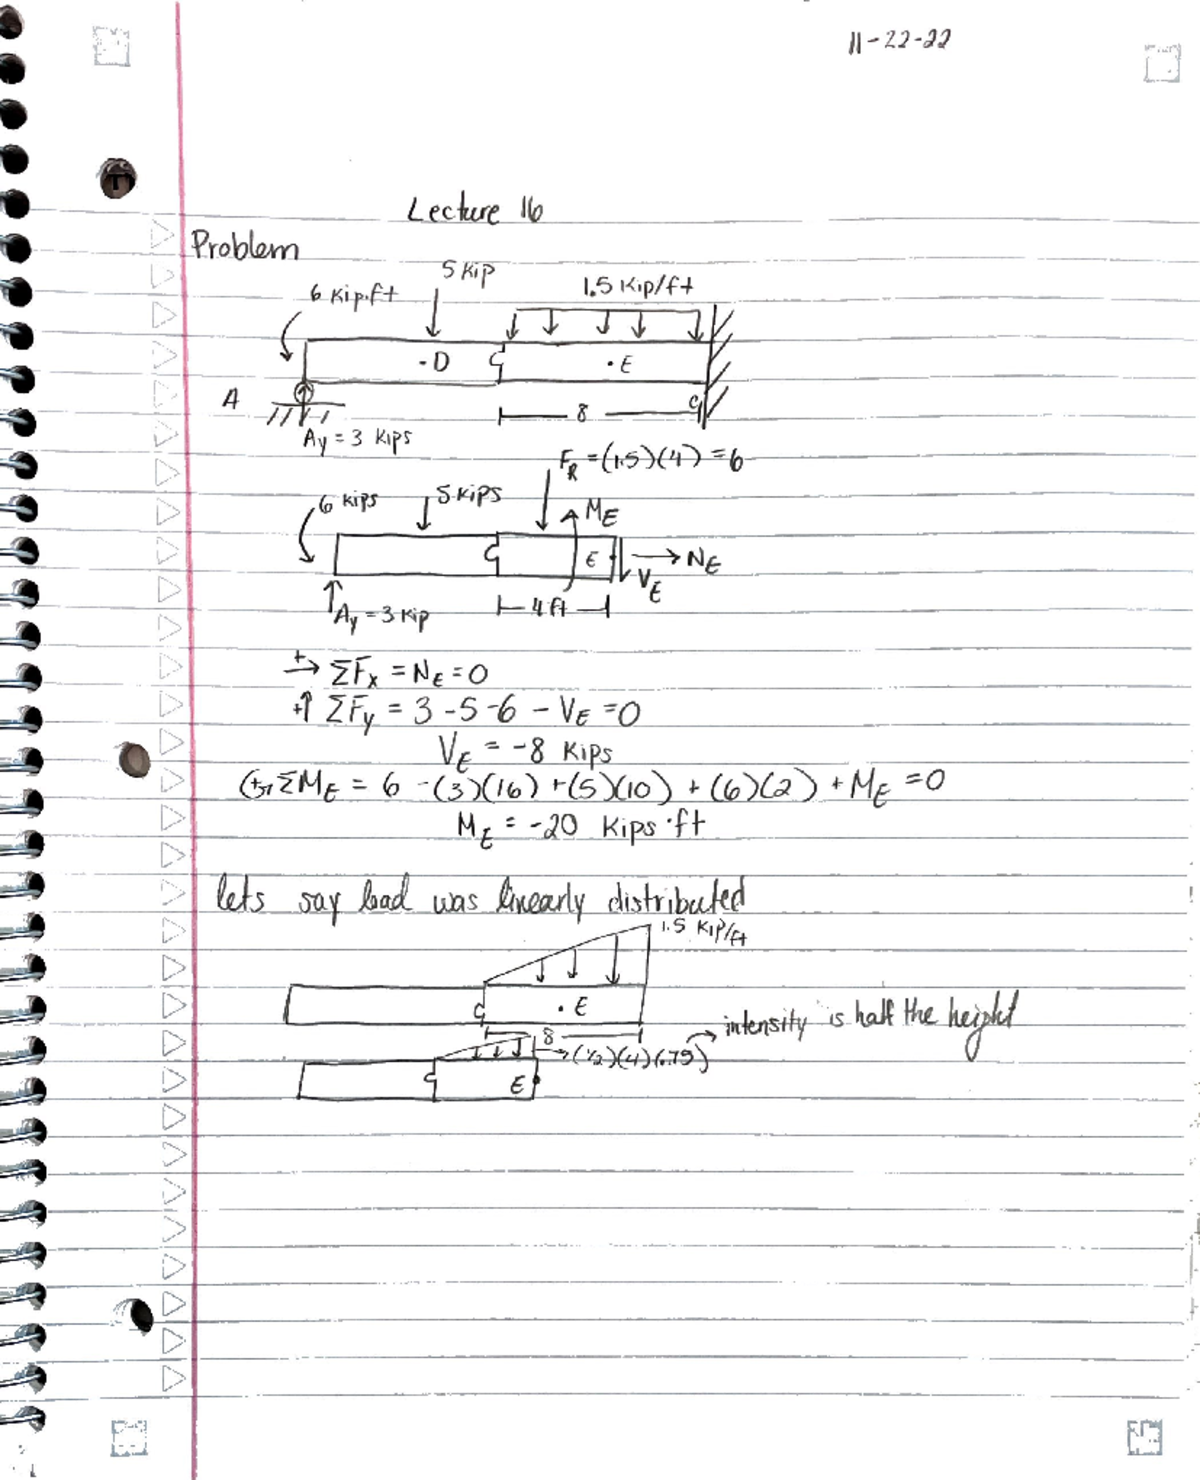 11-22-22
Lecture 16
Problem
5 kip
6 kip·ft
1.5 kip/ft
·D
·E
A
8
Ay = 3 kips
F_R = (1.5)(4) = 6
6 kips
5 kips
M_E
E
N_E
V_E
4 ft
Ay = 3 kip
+→ ΣFx = N_E = 0
+↑ ΣFy = 3 - 5 - 6 - V_E = 0
V_E = -8 kips
ΣM_E = 6 - (3)(16) + (5)(10) + (6)(2) + M_E = 0
M_E = -20 kips·ft
lets say load was linearly distributed
1.5 kip/ft
·E
8
intensity is half the height
(1/2)(4)(.75)
E